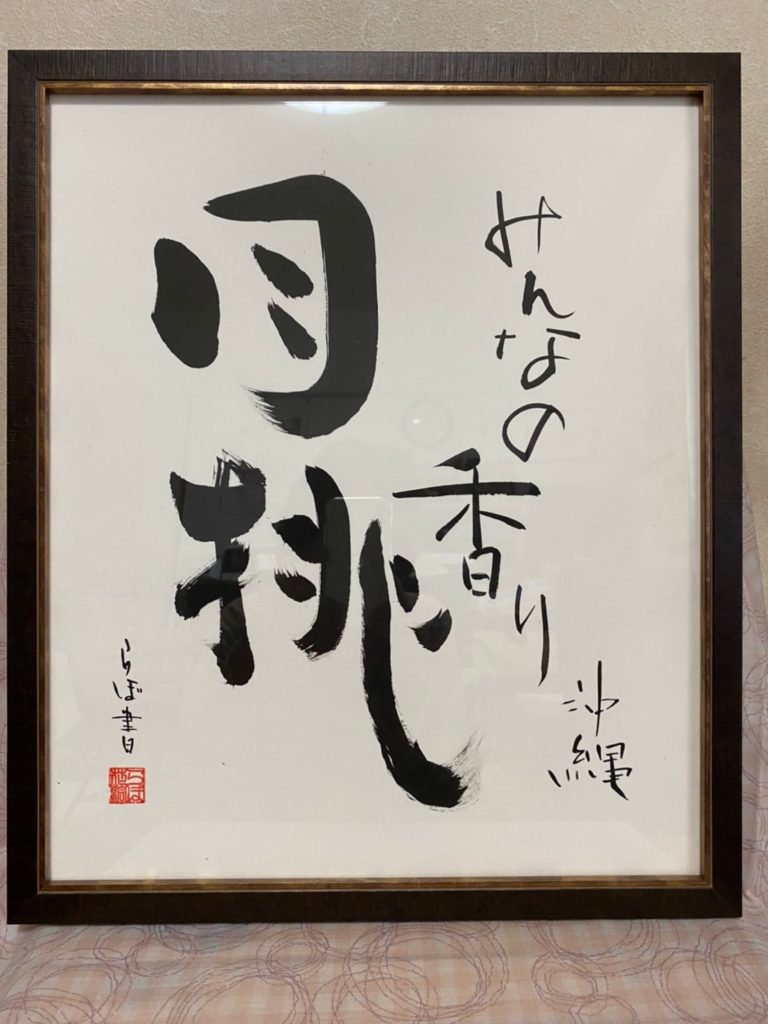 みんなの香り
沖縄
月桃
らぼ書